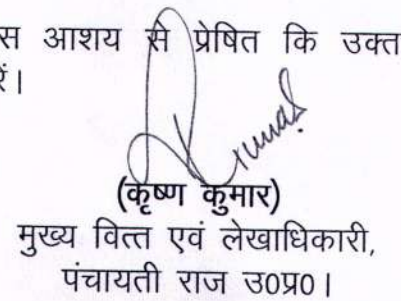 स आशय से प्रेषित कि उक्त
रें।
Kumar
(कृष्ण कुमार)
मुख्य वित्त एवं लेखाधिकारी,
पंचायती राज उ0प्र0।